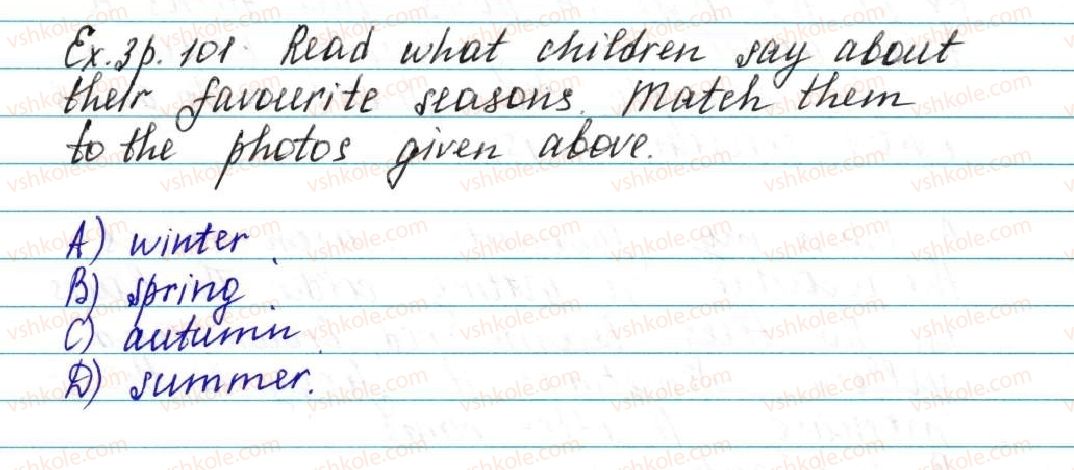 Ex. 3 p. 101. Read what children say about
their favourite seasons. Match them
to the photos given above.
A) winter.
B) spring
C) autumn.
D) summer.